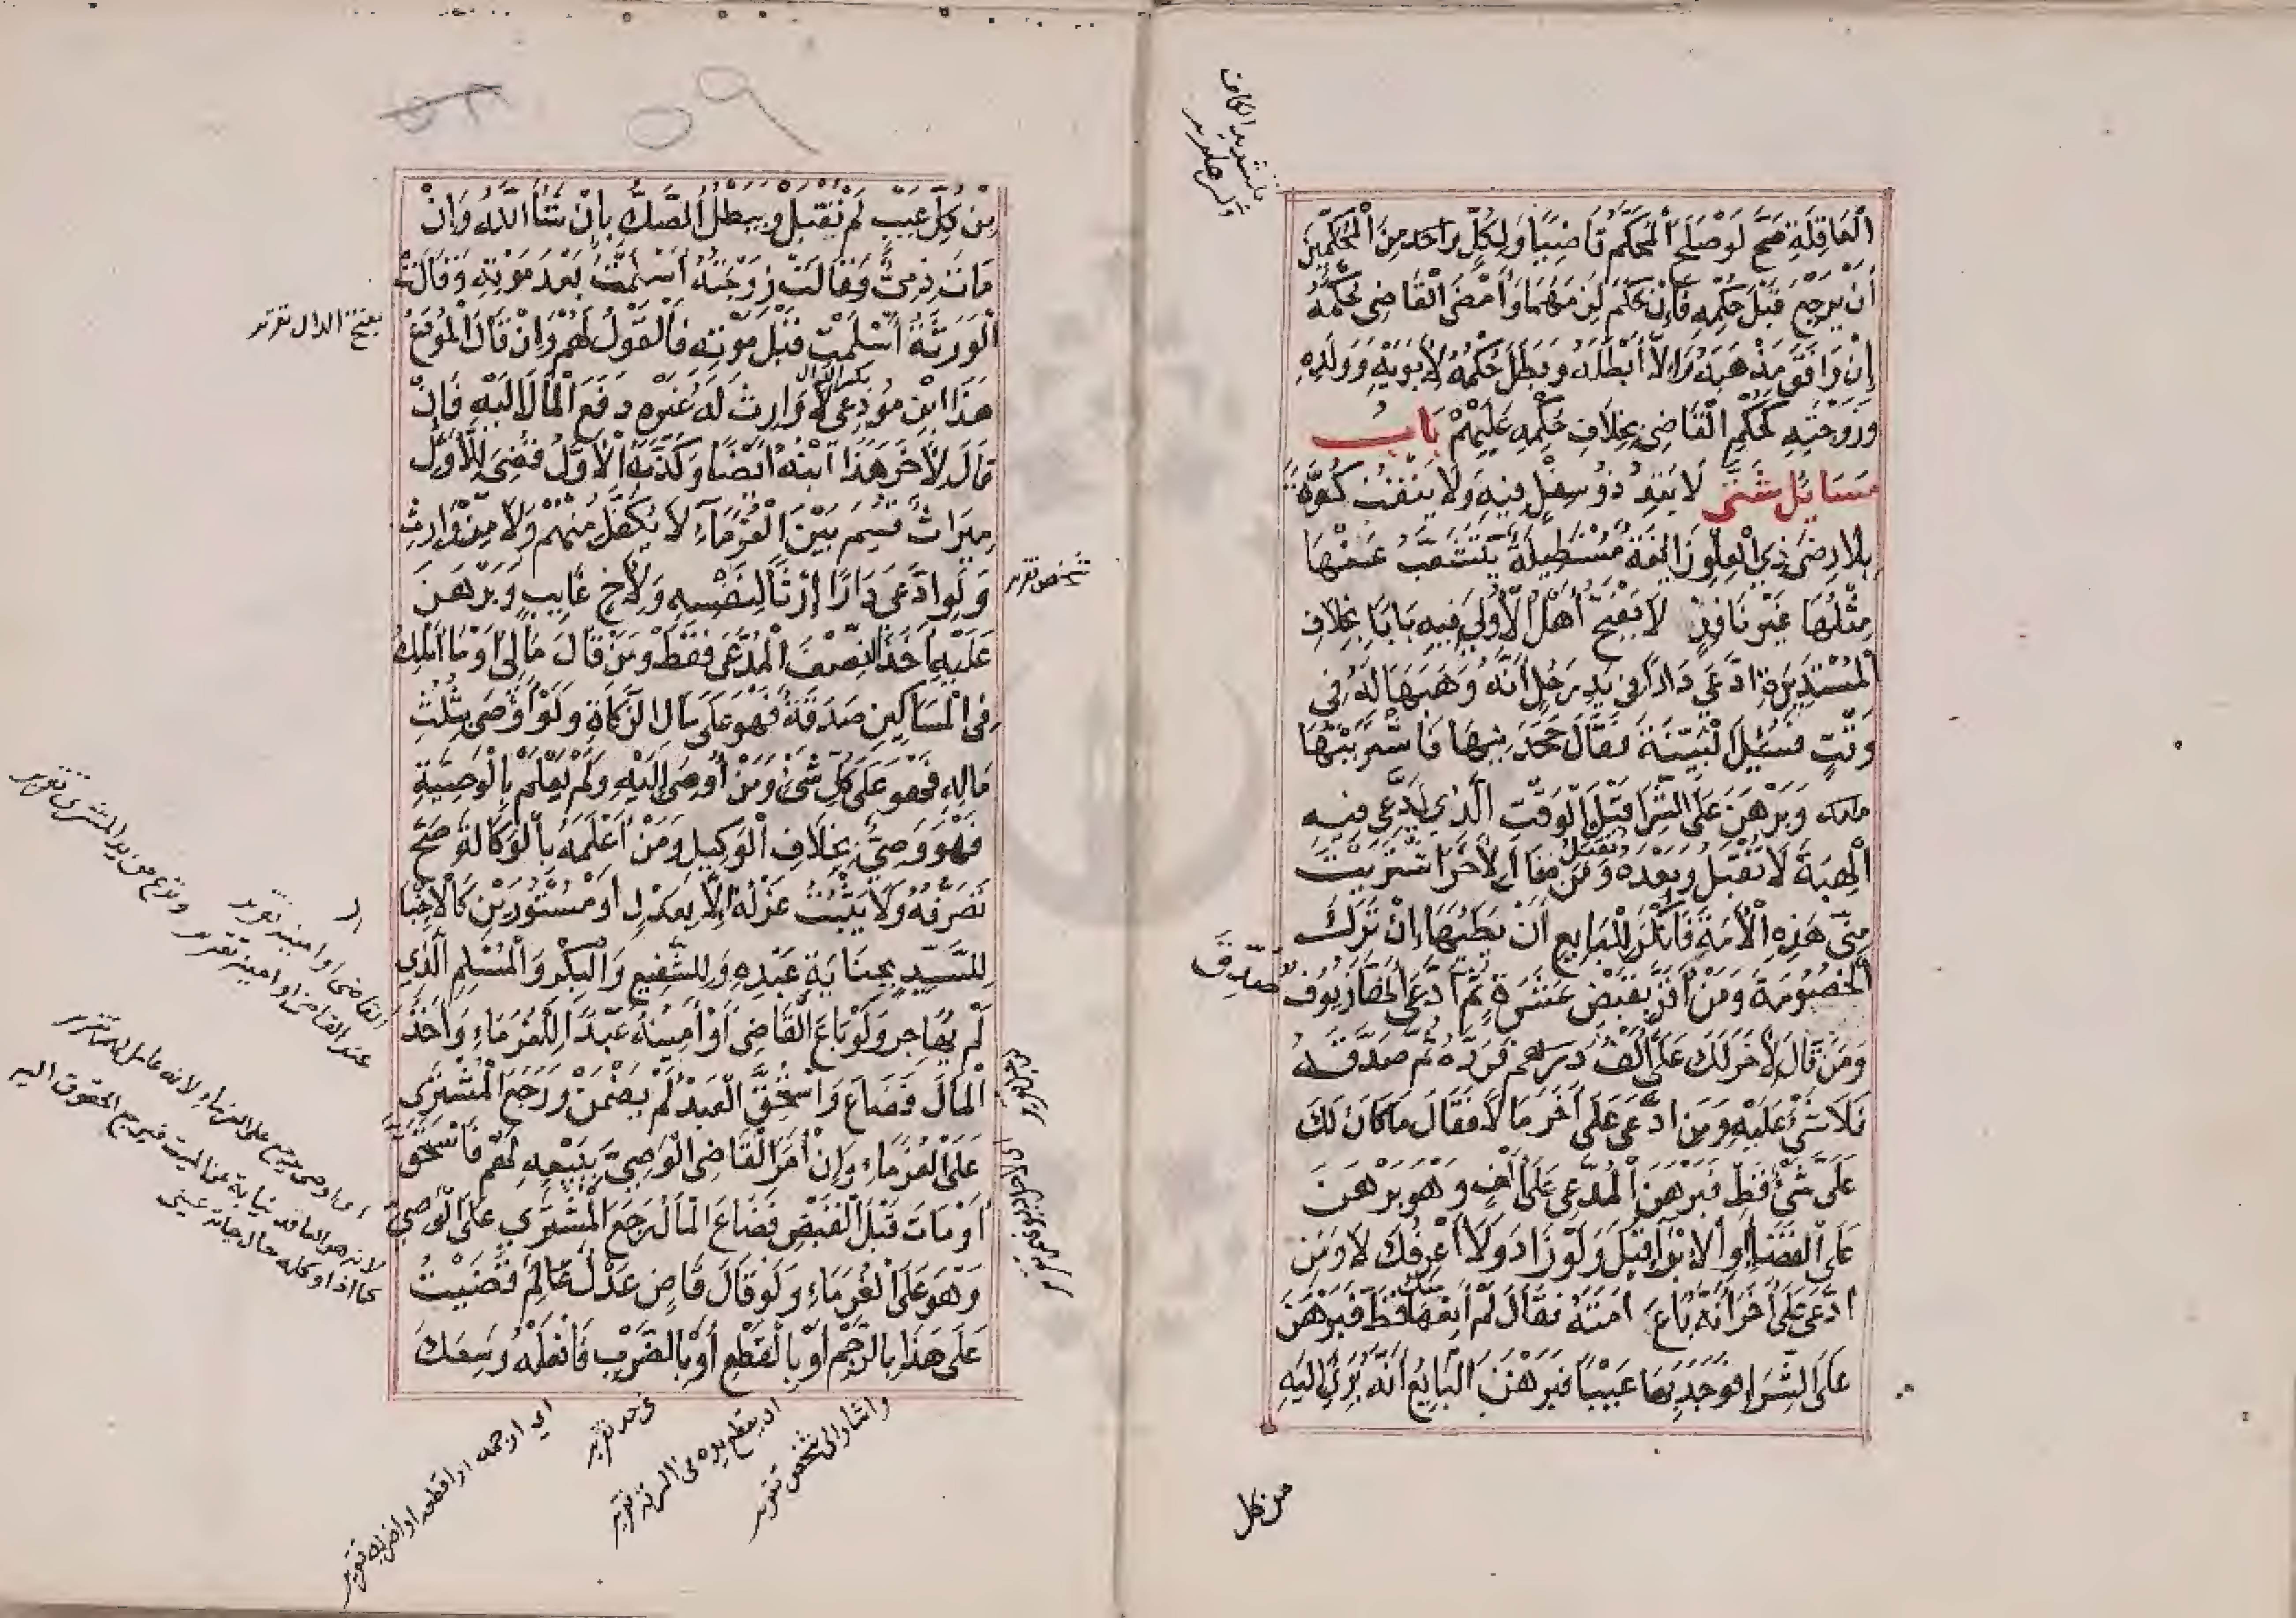 الْعَاقِلَةِ صَحَّ لَوْ صَلَحَ الْمُحَكَّمُ قَاضِيًا وَلِكُلِّ وَاحِدٍ مِنَ الْمُحَكِّمَيْنِ
أَنْ يَرْجِعَ قَبْلَ حُكْمِهِ فَإِنْ حَكَمَ لَزِمَهُمَا وَأَمْضَى الْقَاضِي حُكْمَهُ
إِنْ وَافَقَ مَذْهَبَهُ وَإِلَّا أَبْطَلَهُ وَبَطَلَ حُكْمُهُ لِأَبَوَيْهِ وَوَلَدِهِ
وَزَوْجَتِهِ كَحُكْمِ الْقَاضِي بِخِلَافِ حُكْمِهِ عَلَيْهِمْ بَابُ
مَسَايِلَ شَتَّى لَا يَتِدُ ذُو سِفْلٍ فِيهِ وَلَا يَنْقُبُ كُوَّةً
بِلَا رِضَى ذِي الْعِلْوِ زَايِغَةٌ مُسْتَطِيلَةٌ يَتَشَعَّبُ عَنْهَا
مِثْلُهَا غَيْرُ نَافِذٍ لَا يَفْتَحُ أَهْلُ الْأُولَى فِيهِ بَابًا بِخِلَافِ
الْمُسْتَدِيرَةِ ادَّعَى دَارًا فِي يَدِ رَجُلٍ أَنَّهُ وَهَبَهَا لَهُ فِي
وَقْتٍ فَسُئِلَ الْبَيِّنَةَ فَقَالَ جَحَدَنِيهَا فَاشْتَرَيْتُهَا
منه وَبَرْهَنَ عَلَى الشِّرَا قَبْلَ الْوَقْتِ الَّذِي يَدَّعِي فِيهِ
الْهِبَةَ لَا تُقْبَلُ وَبَعْدَهُ تُقْبَلُ وَمَنْ قَالَ لِآخَرَ اشْتَرَيْتَ
مِنِّي هَذِهِ الْأَمَةَ فَأَنْكَرَ لِلْبَايِعِ أَنْ يَطَأَهَا إِنْ تَرَكَ
الْخُصُومَةَ وَمَنْ أَقَرَّ بِقَبْضِ عَشَرَةٍ ثُمَّ ادَّعَى أَنَّهَا زُيُوفٌ صُدِّقَ
وَمَنْ قَالَ لِآخَرَ لَكَ عَلَيَّ أَلْفُ دِرْهَمٍ فَرَدَّهُ ثُمَّ صَدَّقَهُ
فَلَا شَيْءَ عَلَيْهِ وَمَنِ ادَّعَى عَلَى آخَرَ مَالًا فَقَالَ مَا كَانَ لَكَ
عَلَيَّ شَيْءٌ قَطُّ فَبَرْهَنَ الْمُدَّعِي عَلَى أَلْفٍ وَهُوَ بَرْهَنَ
عَلَى الْقَضَاءِ أَوِ الْإِبْرَاءِ قُبِلَ وَلَوْ زَادَ وَلَا أَعْرِفُكَ لَا وَمَنِ
ادَّعَى عَلَى آخَرَ أَنَّهُ بَاعَ أَمَتَهُ فَقَالَ لَمْ أَبِعْهَا مِنْكَ قَطُّ فَبَرْهَنَ
عَلَى الشِّرَاءِ فَوَجَدَ بِهَا عَيْبًا فَبَرْهَنَ الْبَايِعُ أَنَّهُ بَرِئَ إِلَيْهِ
من كل
٥٩
مِنْ كُلِّ عَيْبٍ لَمْ تُقْبَلْ وَيَبْطُلُ الصَّكُّ بِإِنْ شَاءَ اللَّهُ وَإِنْ
مَاتَ ذِمِّيٌّ وَقَالَتْ زَوْجَتُهُ أَسْلَمْتُ بَعْدَ مَوْتِهِ وَقَالَتْ
الْوَرَثَةُ أَسْلَمْتِ قَبْلَ مَوْتِهِ فَالْقَوْلُ لَهُمْ وَإِنْ قَالَ الْمُودَعُ
بفتح الدال تقرير
هَذَا ابْنُ مُودِعِي لَا وَارِثَ لَهُ غَيْرُهُ دَفَعَ الْمَالَ إِلَيْهِ فَإِنْ
بكسر الدال
قَالَ لِآخَرَ هَذَا ابْنُهُ أَيْضًا وَكَذَّبَهُ الْأَوَّلُ قُضِيَ لِلْأَوَّلِ
مِيرَاثٌ قُسِمَ بَيْنَ الْغُرَمَاءِ لَا يُكْفَلُ مِنْهُمْ وَلَا مِنْ وَارِثٍ
وَلَوِ ادَّعَى دَارًا إِرْثًا لِنَفْسِهِ وَلِأَخٍ غَايِبٍ وَبَرْهَنَ
شخص تقرير
عَلَيْهِ أَخَذَ النِّصْفَ الْمُدَّعَى فَقَطْ وَمَنْ قَالَ مَالِي أَوْ مَا أَمْلِكُ
فِي الْمَسَاكِينِ صَدَقَةٌ فَهُوَ عَلَى مَالِ الزَّكَاةِ وَلَوْ أَوْصَى بِثُلُثِ
مَالِهِ فَهُوَ عَلَى كُلِّ شَيْءٍ وَمَنْ أُوصِيَ إِلَيْهِ وَلَمْ يَعْلَمْ بِالْوَصِيَّةِ
فَهُوَ وَصِيٌّ بِخِلَافِ الْوَكِيلِ وَمَنْ أَعْلَمَهُ بِالْوَكَالَةِ صَحَّ
تَصَرُّفُهُ وَلَا يَثْبُتُ عَزْلُهُ إِلَّا بِعَدْلٍ أَوْ مَسْتُورَيْنِ كَالْإِخْبَا
لِلسَّيِّدِ بِجِنَايَةِ عَبْدِهِ وَلِلشَّفِيعِ وَالْبِكْرِ وَالْمُسْلِمِ الَّذِي
لَمْ يُهَاجِرْ وَلَوْ بَاعَ الْقَاضِي أَوْ أَمِينُهُ عَبْدًا لِلْغُرَمَاءِ وَأَخَذَ
الْمَالَ فَضَاعَ وَاسْتُحِقَّ الْعَبْدُ لَمْ يَضْمَنْ وَرَجَعَ الْمُشْتَرِي
عَلَى الْغُرَمَاءِ وَإِنْ أَمَرَ الْقَاضِي الْوَصِيَّ بِبَيْعِهِ لَهُمْ فَاسْتُحِقَّ
أَوْ مَاتَ قَبْلَ الْقَبْضِ فَضَاعَ الْمَالُ رَجَعَ الْمُشْتَرِي عَلَى الْوَصِيِّ
وَهُوَ عَلَى الْغُرَمَاءِ وَلَوْ قَالَ قَاضٍ عَدْلٌ عَالِمٌ قَضَيْتُ
عَلَى هَذَا بِالرَّجْمِ أَوْ بِالْقَطْعِ أَوْ بِالضَّرْبِ فَافْعَلْهُ وَسِعَكَ
القاضي او امينه تقرير
عند القاضي او امينه تقرير
اى الوصي يرجع على الغرماء لانه عامل لهم تقرير
لانه هو العاقد نيابة عن الميت فيرجع الحقوق اليه
كما اذا وكله حال حياته عيني
واشار الى شخص تقرير
ان يقطع يده في السرقة تقرير
في حد تقرير
اي ارجمه او اقطعه او اضربه تقرير